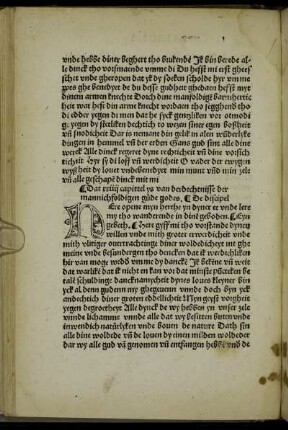 vnde hebbe diner beghert tho bukende Jk bin berede al-
le dinck tho vorsmaende vmme di Du heffst mi erst ghees-
schet vnde gheropen dat yk dy soeken scholde hyr vmme
wes ghe benedyet de du desse gudheit ghedaen heffst myt
dinem armen knechte Doch dine manfoldige barmherticheit
wat hefft din arme knecht vordaen tho segghend tho
di edder yegen di men dat he syck gentzliken vor otmodi
ge yegen dy stedliken dechtich to wezen siner egen boßheit
vñ snodicheit Dar is nemant din gelik in allen wũderlyke
dingen in hemmel vñ der erden Gans gud sint alle dine
wercke Alle dinck regere dyne rechticheit vñ dine vorsich
ticheit Hyr sy di loff vñ werdicheit O vader der ewygen
wyßheit dy louet vndebenedyet min munt vñd min zele
vñ alle geschapẽ dinck mit mi
¶ Dat xxiiij capittel ys van der dechtenisse der
mannichfoldigen güde godes. ¶ De discipel
Here opene myn herthe yn dyner ee vnde lere
my tho wanderende in dine geboden. ¶ Eyn
gebeth. ¶ Here gyff mi tho vorstande dynen
willen vnde mith groter erwerdicheit vnde
mith vlitiger ouertrachtinge diner woldedicheyt int ghe
meine vnde besundergen tho dencken dat ik dy werdichliken
hir van moge wedd vmme dy dancke Jk bekẽne vñ weit
dat warlikẽ dat ik nicht en kan vor dat minste pũcteken be
tale schuldinge dancknamycheit dynes loues Kleyner bin
yck al dem gudem my ghegeuem vnde doch byn yck
andechtich diner groten eddelicheit Myn geyst vorgheit
yegen de groetheyt Alle dynck de wy hebben yn vnser zele
vnde lichamme vnnde alle dat wy besitten butenvnde
inwendich natürlyken vnde bouen de nature Dath sin
alle dine woldede vñ de louen dy einen milden woldeder
dar wy alle gud vã genomen vñ entfangen hebbẽ vnd de